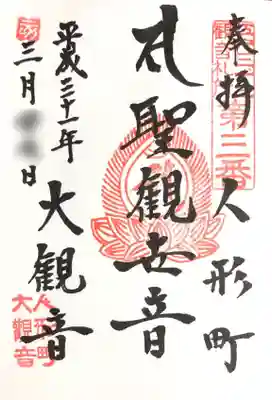 奉拝 人形町
第三番
札聖観世音
大観音
平成三十一年
三月 日
人形町
大観音